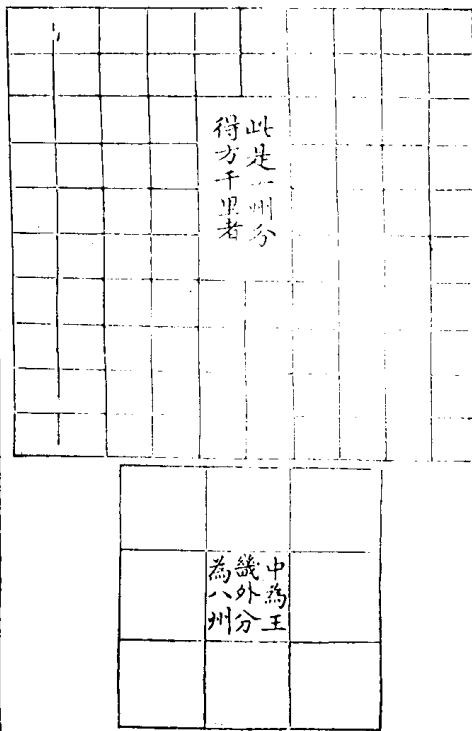 此是一州分
得方千里者
中為王
畿外分
為八州